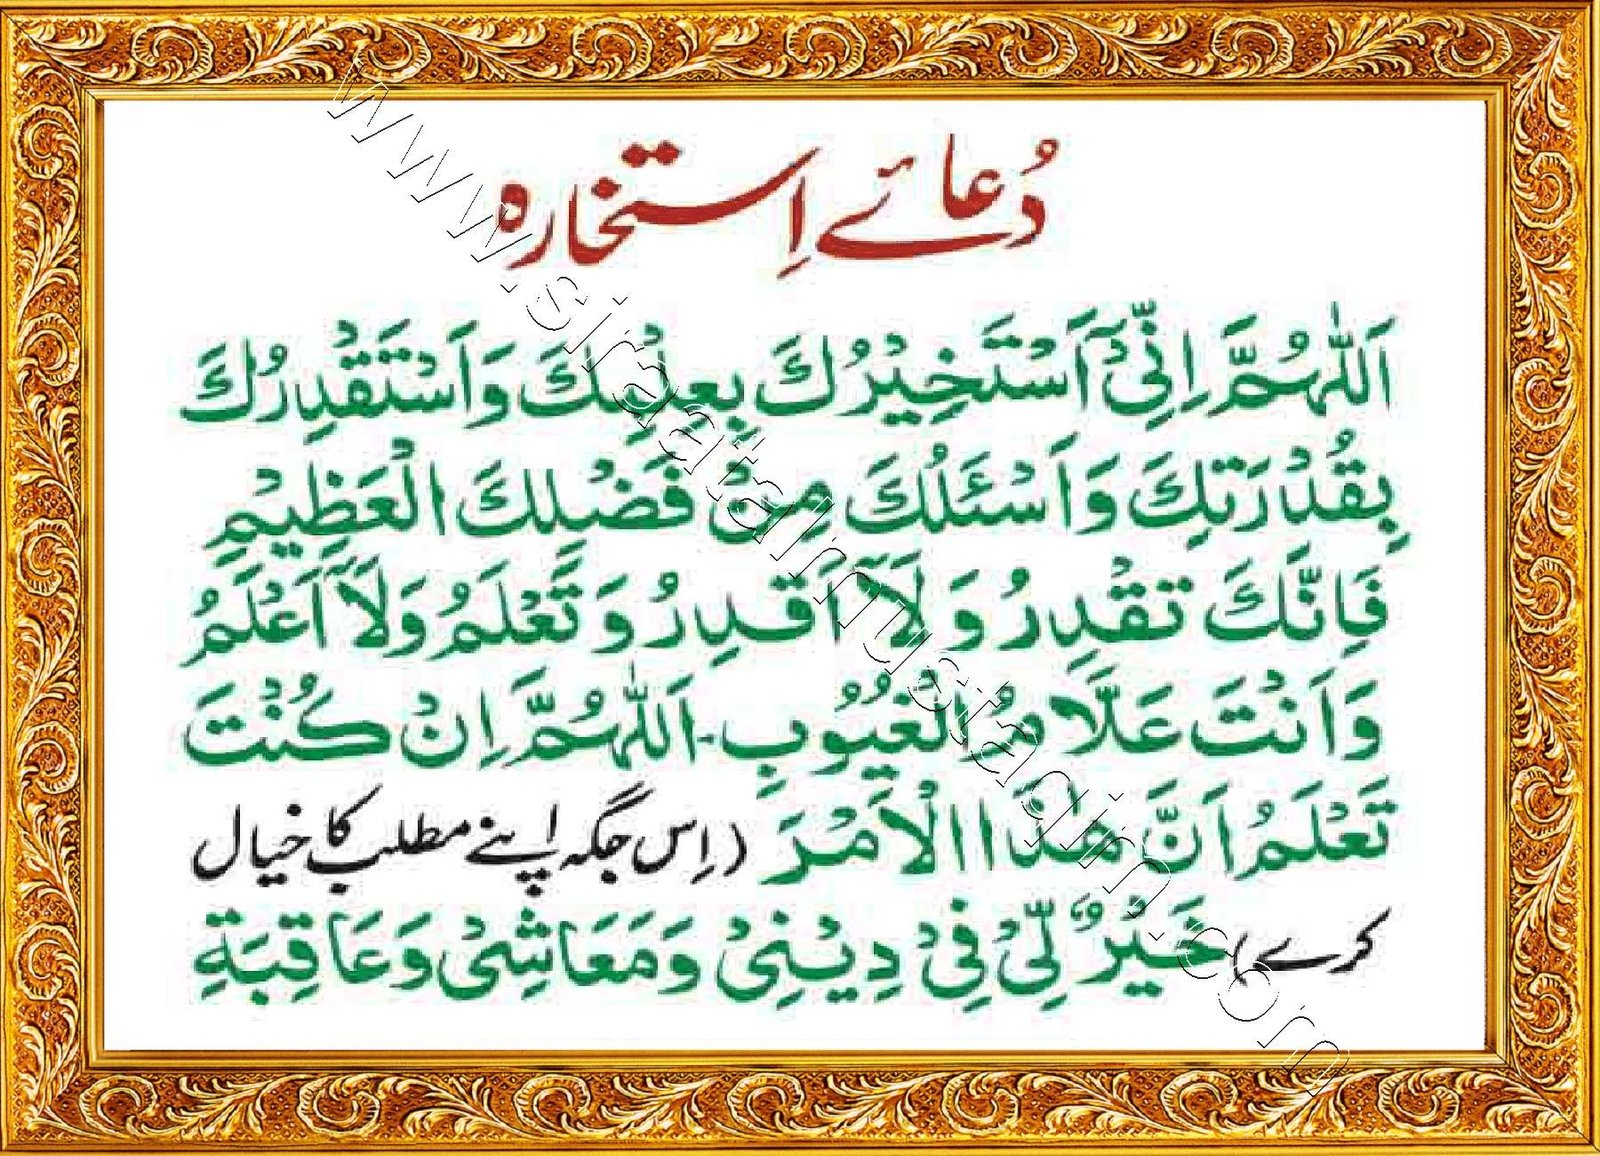 دُعائے اِستخارہ
اَللّٰهُمَّ اِنِّیْۤ اَسْتَخِیْرُكَ بِعِلْمِكَ وَاَسْتَقْدِرُكَ
بِقُدْرَتِكَ وَاَسْئَلُكَ مِنْ فَضْلِكَ الْعَظِیْمِ
فَاِنَّكَ تَقْدِرُ وَلَاۤ اَقْدِرُ وَتَعْلَمُ وَلَاۤ اَعْلَمُ
وَاَنْتَ عَلَّامُ الْغُیُوْبِ۔ اَللّٰهُمَّ اِنْ كُنْتَ
تَعْلَمُ اَنَّ هٰذَا الْاَمْرَ (اِس جگہ اپنے مطلب کا خیال
کرے) خَیْرٌ لِّیْ فِیْ دِیْنِیْ وَمَعَاشِیْ وَعَاقِبَةِ
www.siraatalmustaqim.com